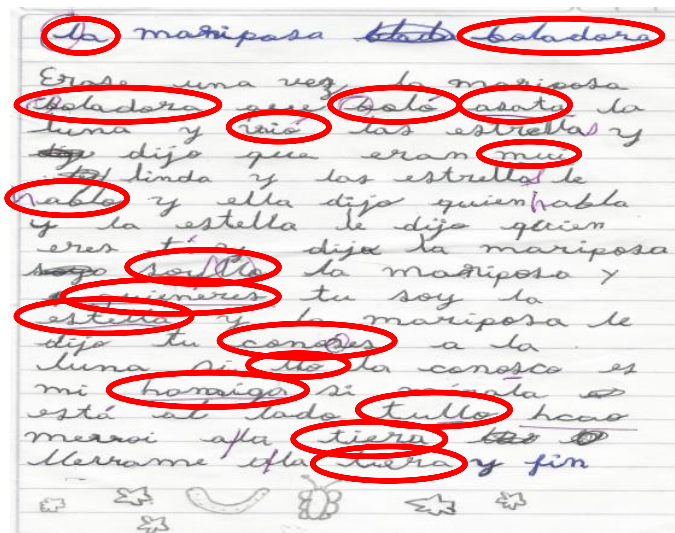 la mariposa boladora
Erase una vez la mariposa
boladora que boló asata la
luna y vió las estrellas y
dijo que eran mui
linda y las estrellas le
hablo y ella dijo quien habla
y la estella le dijo quien
eres tú y dijo la mariposa
soillo la mariposa y
quieneres tu soy la
estella y la mariposa le
dijo tu conoses a la
luna si llo la conosco es
mi hamiga si
está al lado tullo hcao
merroi a la tiera
llerrame a la tiera y fin